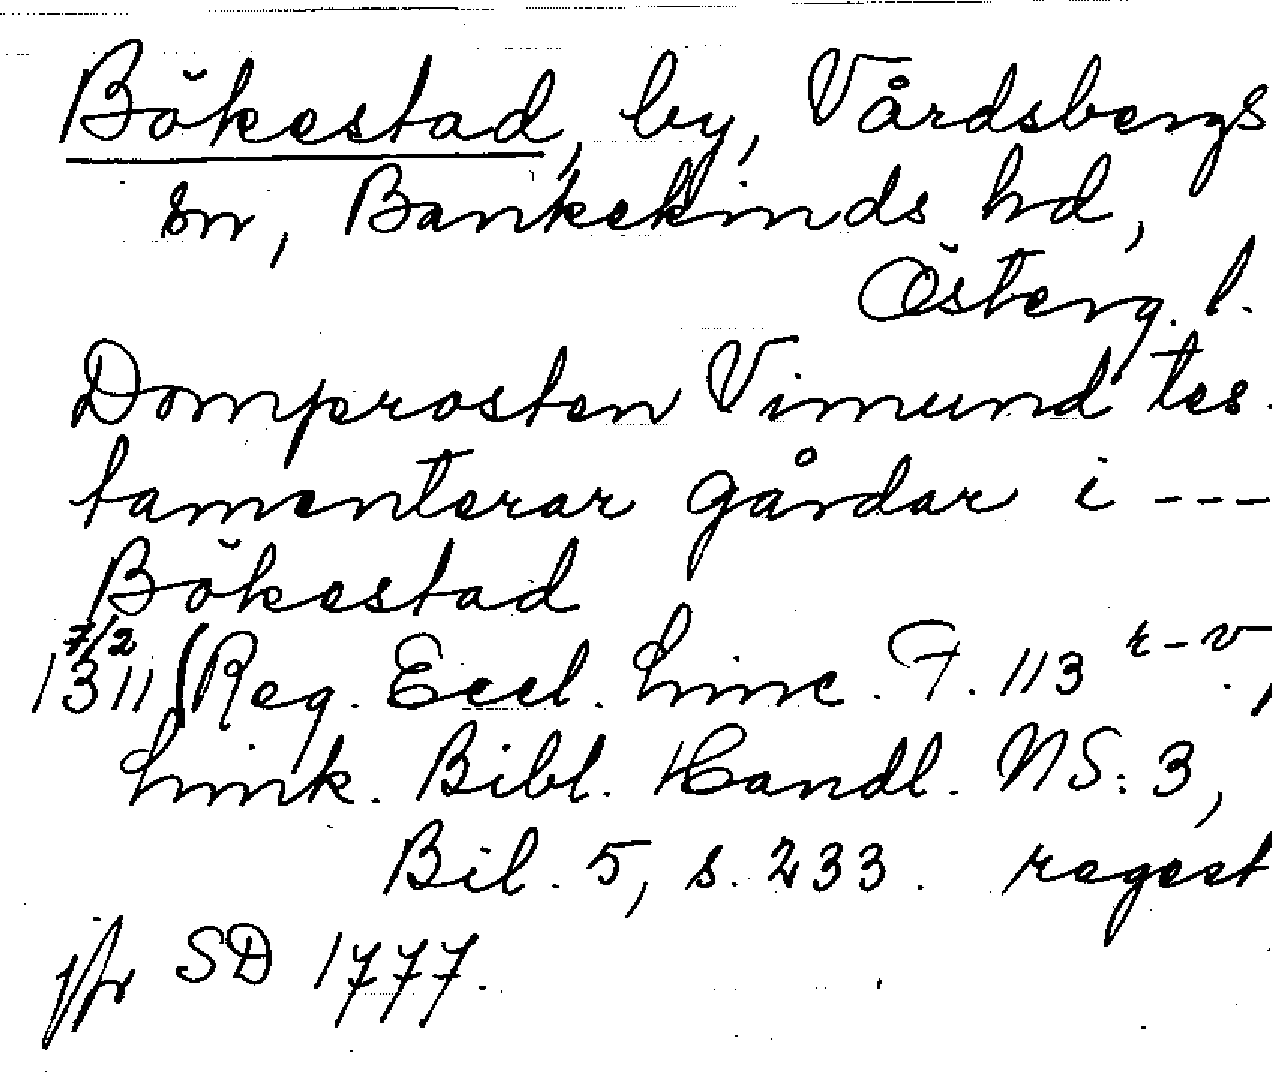 Bökestad, by, Vårdsbergs
sn, Bankekinds hd,
Österg. l.
Domprosten Vimund tes-
tamenterar gårdar i ---
Bökestad
7/2
1311 (Reg. Eccl. Linc. F. 113 r-v.,
Link. Bibl. Handl. NS: 3,
Bil. 5, s. 233. regest
jfr SD 1777.